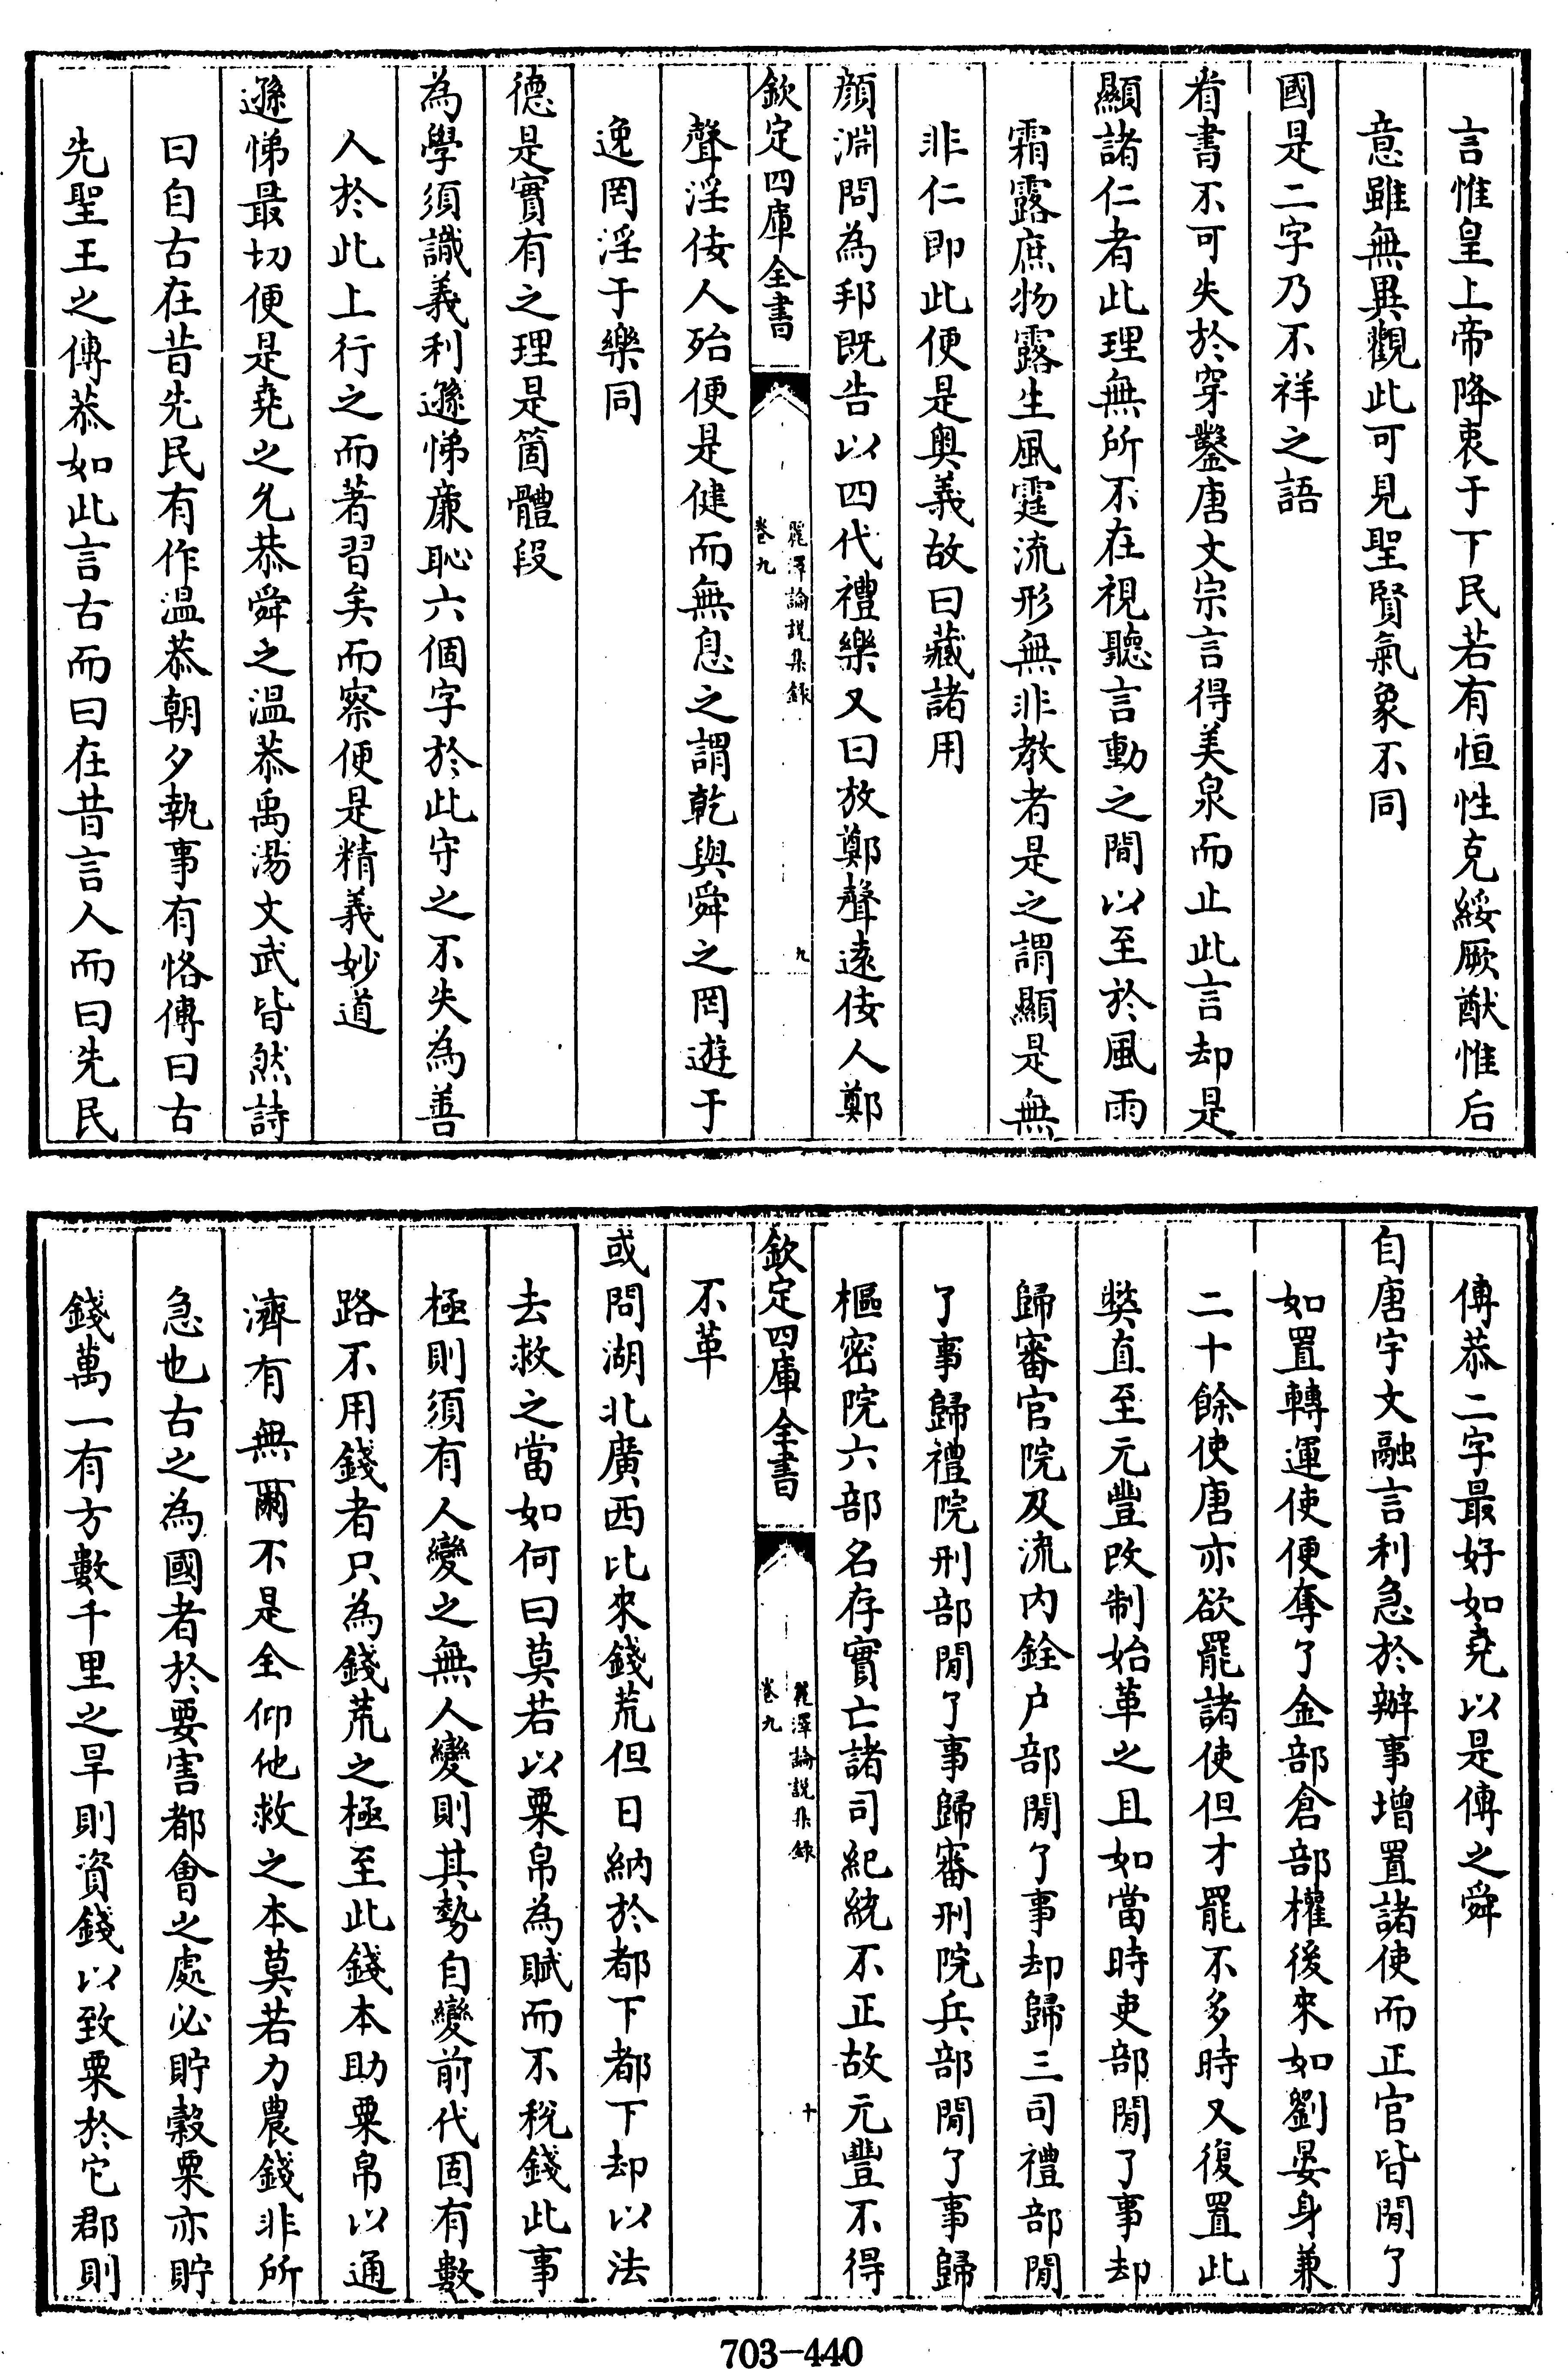 言惟皇上帝降衷于下民若有恒性克綏厥猷惟后
意雖無異觀此可見聖賢氣象不同
國是二字乃不祥之語
看書不可失於穿鑿唐文宗言得美泉而止此言却是
顯諸仁者此理無所不在視聽言動之間以至於風雨
霜露庶物露生風霆流形無非教者是之謂顯是無
非仁即此便是奥義故曰藏諸用
顔淵問為邦既告以四代禮樂又曰放鄭聲遠佞人鄭
欽定四庫全書
麗澤論説集録
卷九
九
聲淫佞人殆便是健而無息之謂乾與舜之罔遊于
逸罔淫于樂同
德是實有之理是箇體段
為學須識義利遜悌廉恥六個字於此守之不失為善
人於此上行之而著習矣而察便是精義妙道
遜悌最切便是堯之允恭舜之温恭禹湯文武皆然詩
曰自古在昔先民有作温恭朝夕執事有恪傳曰古
先聖王之傳恭如此言古而曰在昔言人而曰先民
傳恭二字最好如堯以是傳之舜
自唐宇文融言利急於辦事増置諸使而正官皆閒了
如置轉運使便奪了金部倉部權後來如劉晏身兼
二十餘使唐亦欲罷諸使但才罷不多時又復置此
獘直至元豐改制始革之且如當時吏部閒了事却
歸審官院及流内銓户部閒了事却歸三司禮部閒
了事歸禮院刑部閒了事歸審刑院兵部閒了事歸
樞密院六部名存實亡諸司紀統不正故元豐不得
欽定四庫全書
麗澤論説集録
卷九
十
不革
或問湖北廣西比來錢荒但日納於都下都下却以法
去救之當如何曰莫若以粟帛為賦而不税錢此事
極則須有人變之無人變則其勢自變前代固有數
路不用錢者只為錢荒之極至此錢本助粟帛以通
濟有無爾不是全仰他救之本莫若力農錢非所
急也古之為國者於要害都會之處必貯穀粟亦貯
錢萬一有方數千里之旱則資錢以致粟於它郡則
703-440